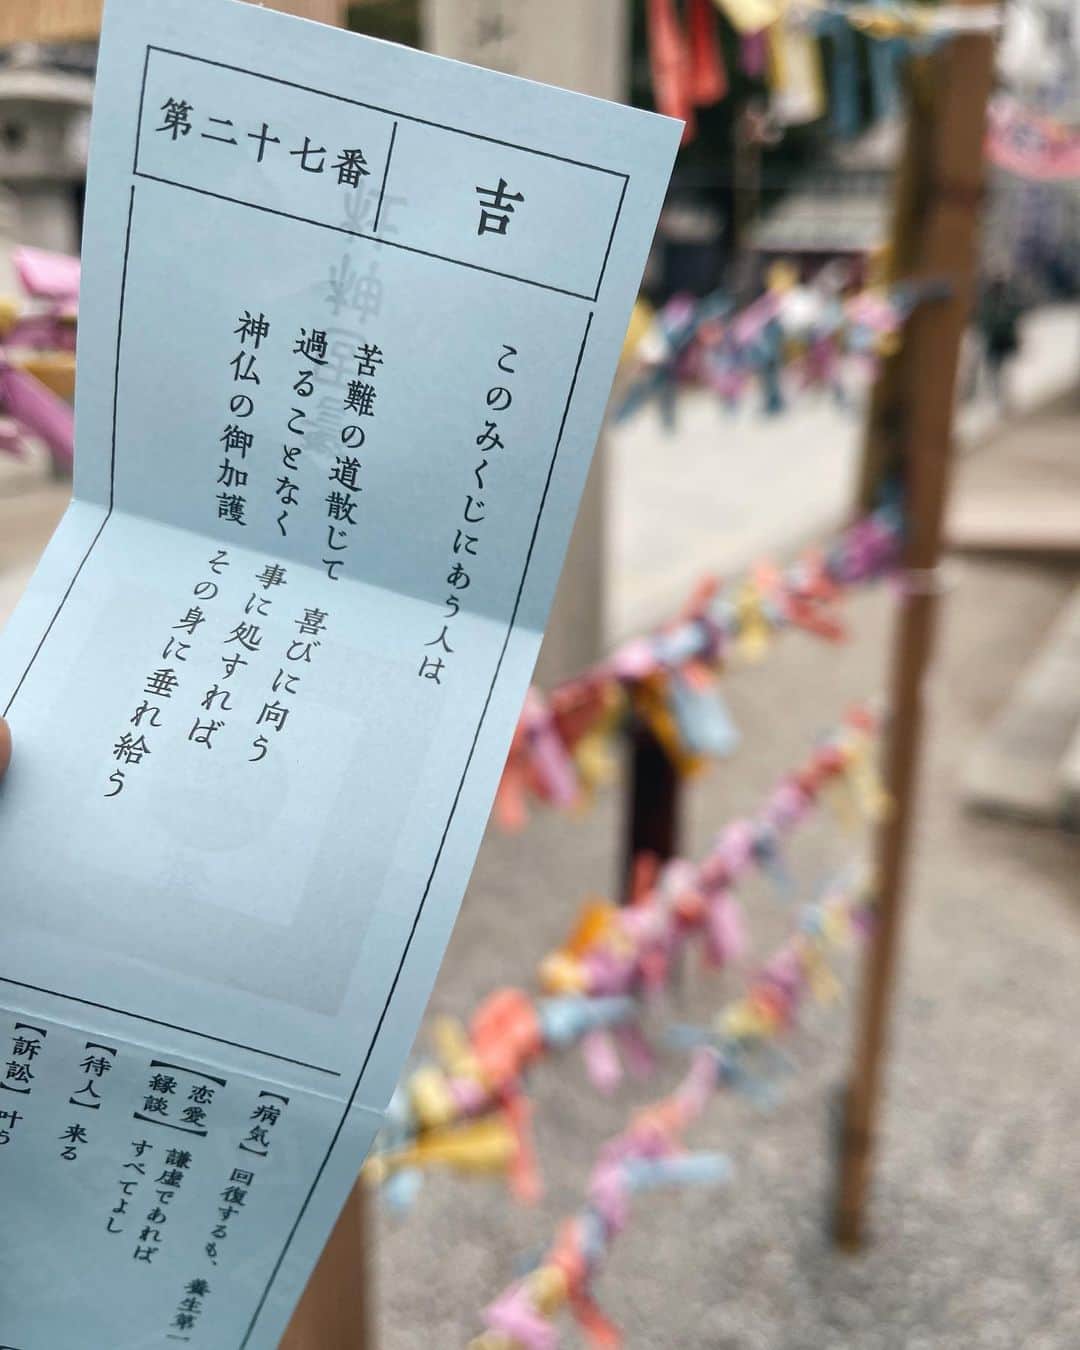 吉
第二十七番
このみくじにあう人は
苦難の道散じて　喜びに向う
過ることなく　事に処すれば
神仏の御加護　その身に垂れ給う
【病気】回復するも、養生第一
【恋愛】【縁談】謙虚であれば
すべてよし
【待人】来る
【訴訟】叶う